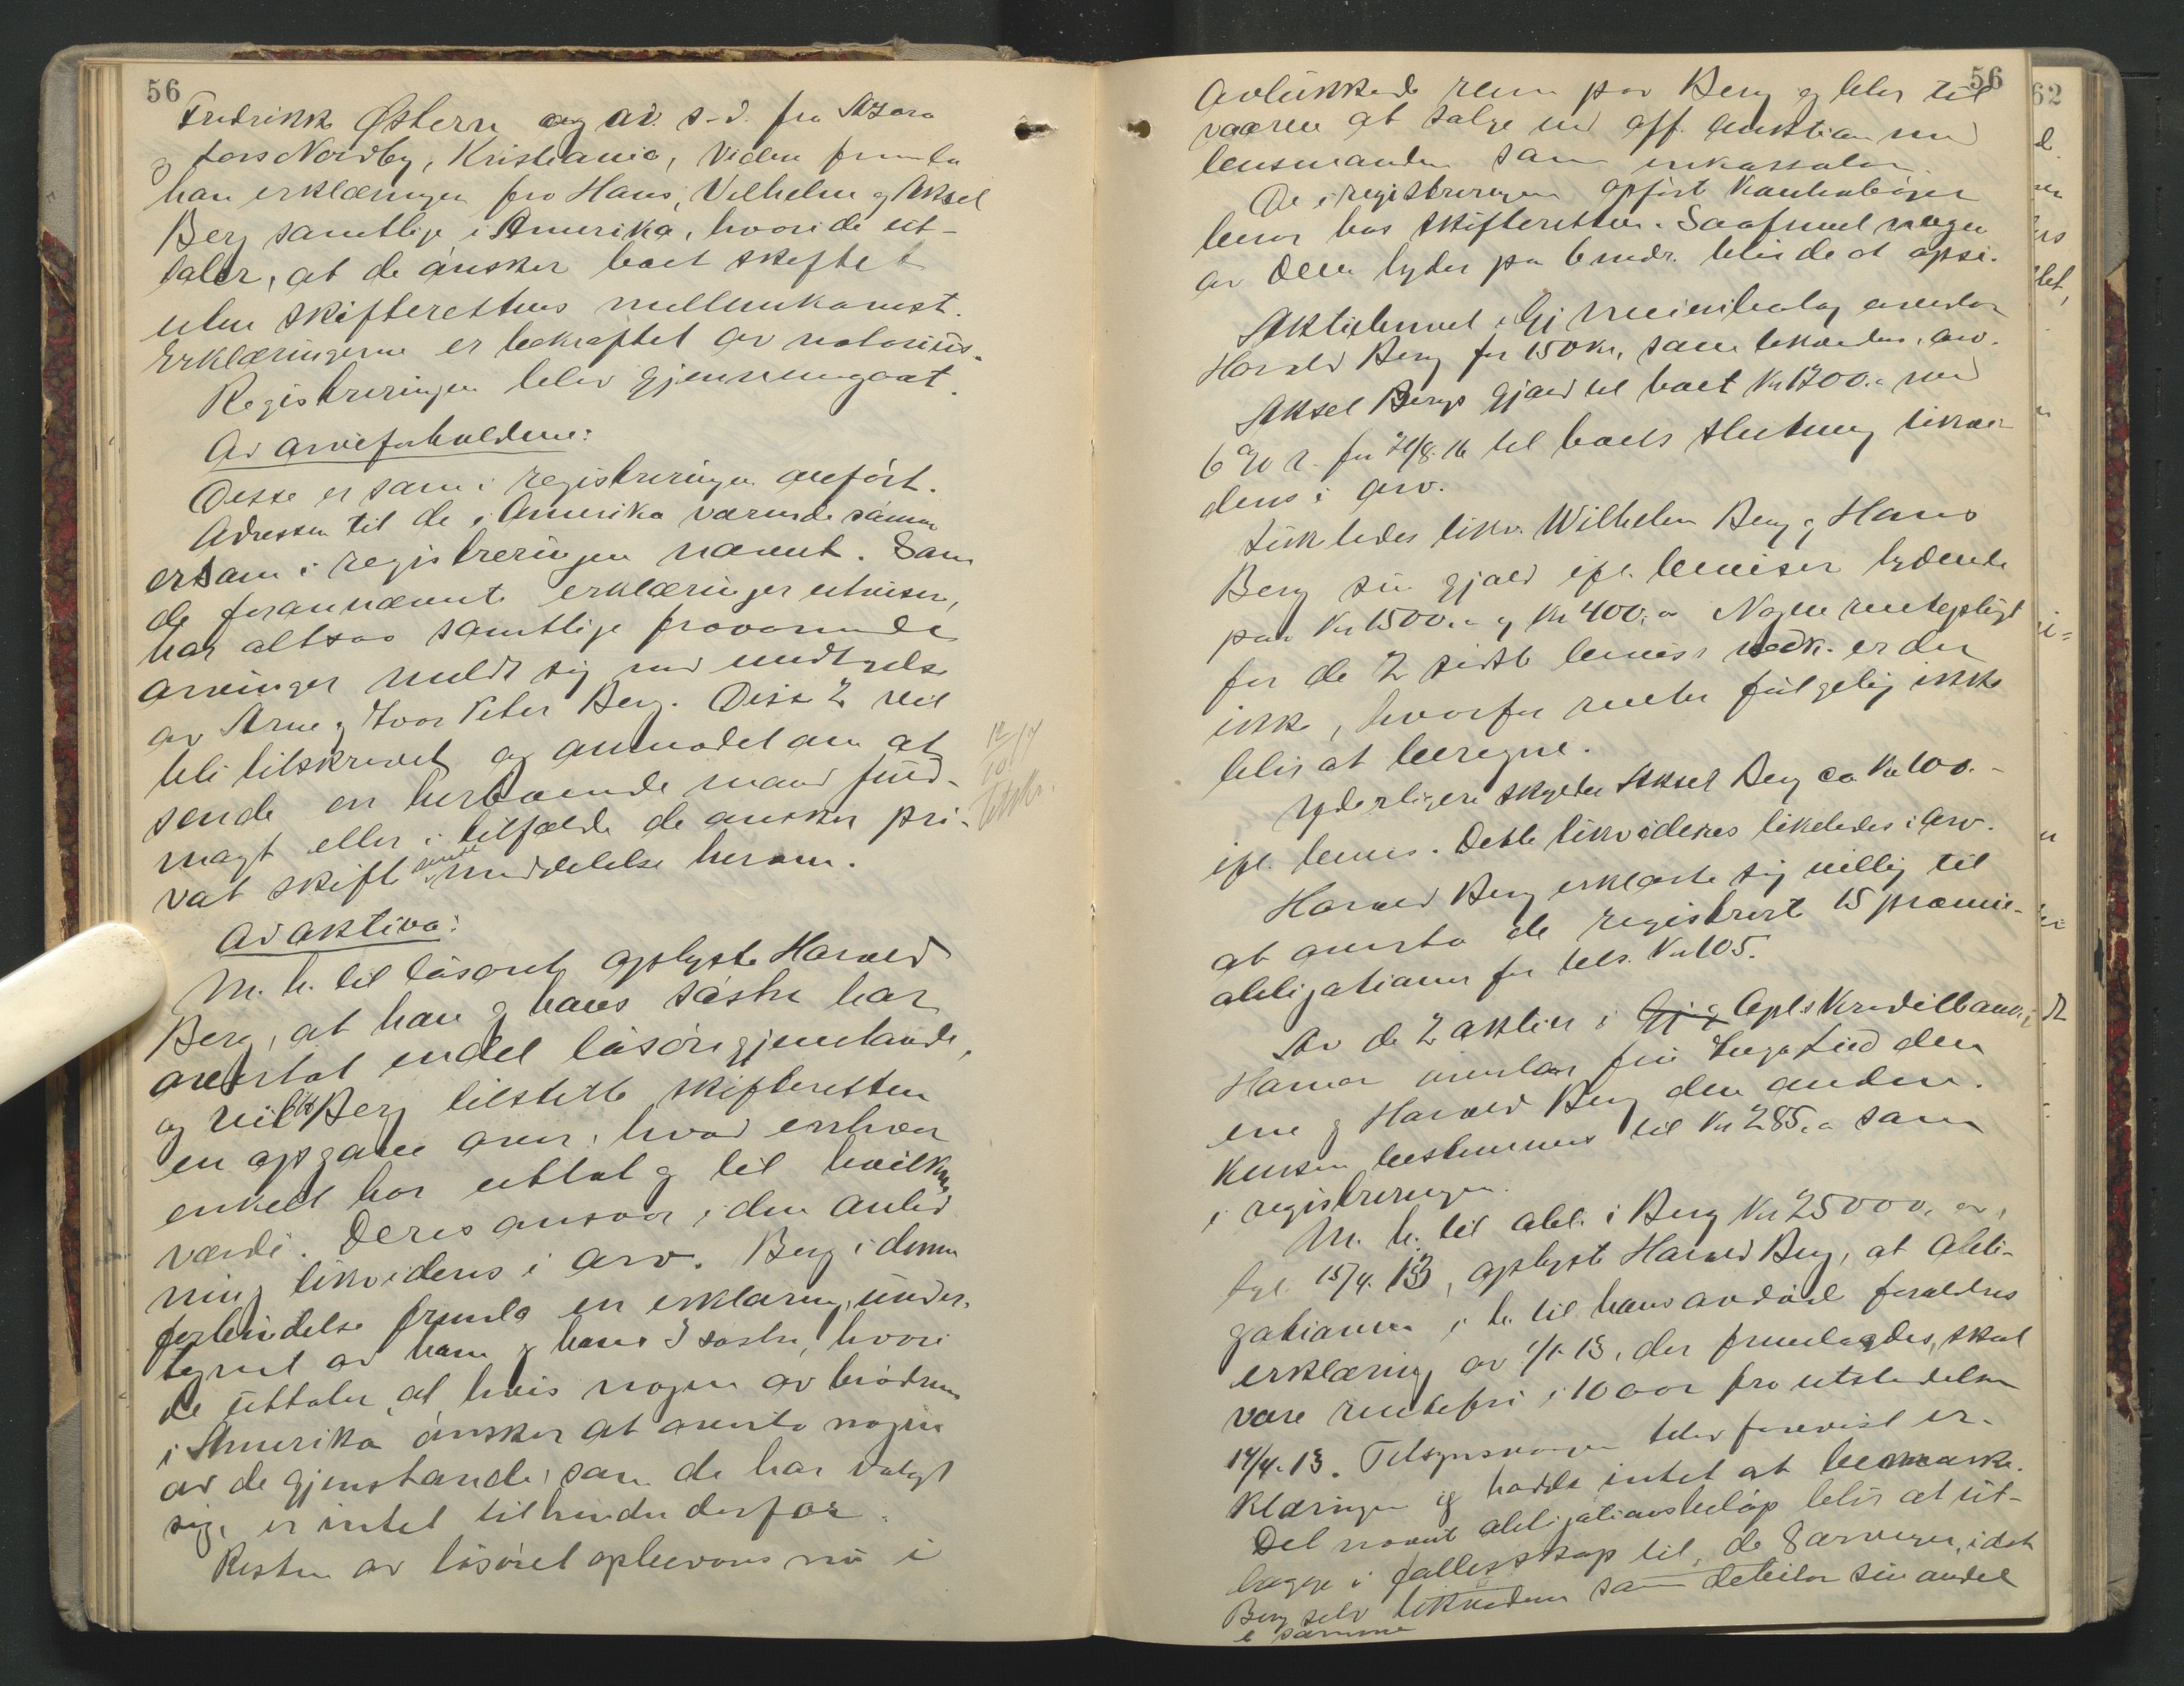 56
Fredrikk Østern og av s. d. fra Azora
og Lars Nordby, Kristiania, Viden fremla
han erklæringer fra Hans, Vilhelm og Aksel
Berg samtlige i Amerika, hvori de ut-
taler, at de ønsker boet skiftet
uten skifterettens mellemkomst.
Erklæringerne er bekræftet av notarius.
Registreringen blev gjennemgaat.
Ad arveforholdene:
Disse er som i registreringen anført.
Adressen til de i Amerika værende sønner
er som i registreringen nævnt. Som
de forannævnte erklæringer utviser,
har altsaa samtlige fraværende
arvinger meldt sig med undtagelse
av Arne og Ivar Peter Berg. Disse 2 vil
bli tilskrevet og anmodet om at
sende en herboende mand fuld-
magt eller i tilfælde de ønsker pri-
vat skifte sende meddelelse herom.
12/10 17
utskr.
Ad aktiva:
M. h. til løsøret oplyste Harald
Berg, at han og hans søstre har
overtat endel løsøregjenstande,
og vil Berg tilstille skifteretten
en opgave over, hvad enhver
enkelt har uttat og til hvilken
værdi. Deres ansvar i den anled
ning likvideres i arv. Berg i denne
forbindelse fremla en erklæring, under-
tegnet av ham og hans 3 søstre, hvori
de uttaler, at hvis nogen av brødrene
i Amerika ønsker at overta nogen
av de gjenstande, som de har valgt
sig, er intet til hinder derfor.
Resten av løsøret opbevares nu i
56
avlukkede rum paa Berg og blir til
vaaren at sælge ved off. auktion med
lensmanden som inkassator.
De i registreringen opført bankabøger
beror hos skifteretten. Saafremt nogen
av dem lyder paa 6 mdr. blir de at opsi.
Aktiebrevet i Gj. overtar
Harald Berg for 150 kr, som likvideres i arv.
Aksel Bergs gjæld til boet Kr 1700.- med
6 % r. fra 21/8.16 til boets slutning likvi-
deres i arv.
Likeledes likv. Wilhelm Berg og Hans
Berg sin gjæld ifl. beviser lydende
paa Kr 1500.- og Kr 400.- Nogen rentepligt
for de 2 sidste bevisers vedk. er der
ikke, hvorfor renter følgelig ikke
blir at beregne.
Yderligere skylder Aksel Berg ca Kr 100.-
ifl. bevis. Dette likvideres likeledes i arv.
Harald Berg erklærte sig villig til
at overta de registrerte 15 præmie-
obligationer for tils. Kr 105.
Av de 2 aktier i Opl.s Kreditbank,
Hamar overtar fru Inga Lied den
ene og Harald Berg den anden.
Kursen bestemmes til Kr 285.- som
i registreringen.
M. h. til obl. i Berg Kr 25000. av,
tgl. 15/4. 13, oplyste Harald Berg, at obli-
gationen i h. til hans avdøde forældres
erklæring av 1/1. 13, der fremlagdes, skal
være rentefri i 10 aar fra utstedelsen
14/4. 13. Tilsynsværgen blev forevist er-
klæringen og hadde intet at bemærke.
Det nævnte obligationsbeløp blir at ut-
lægge i fællesskap til de 8 arvinger, idet
Berg selv likviderer sin andel
i samme
62